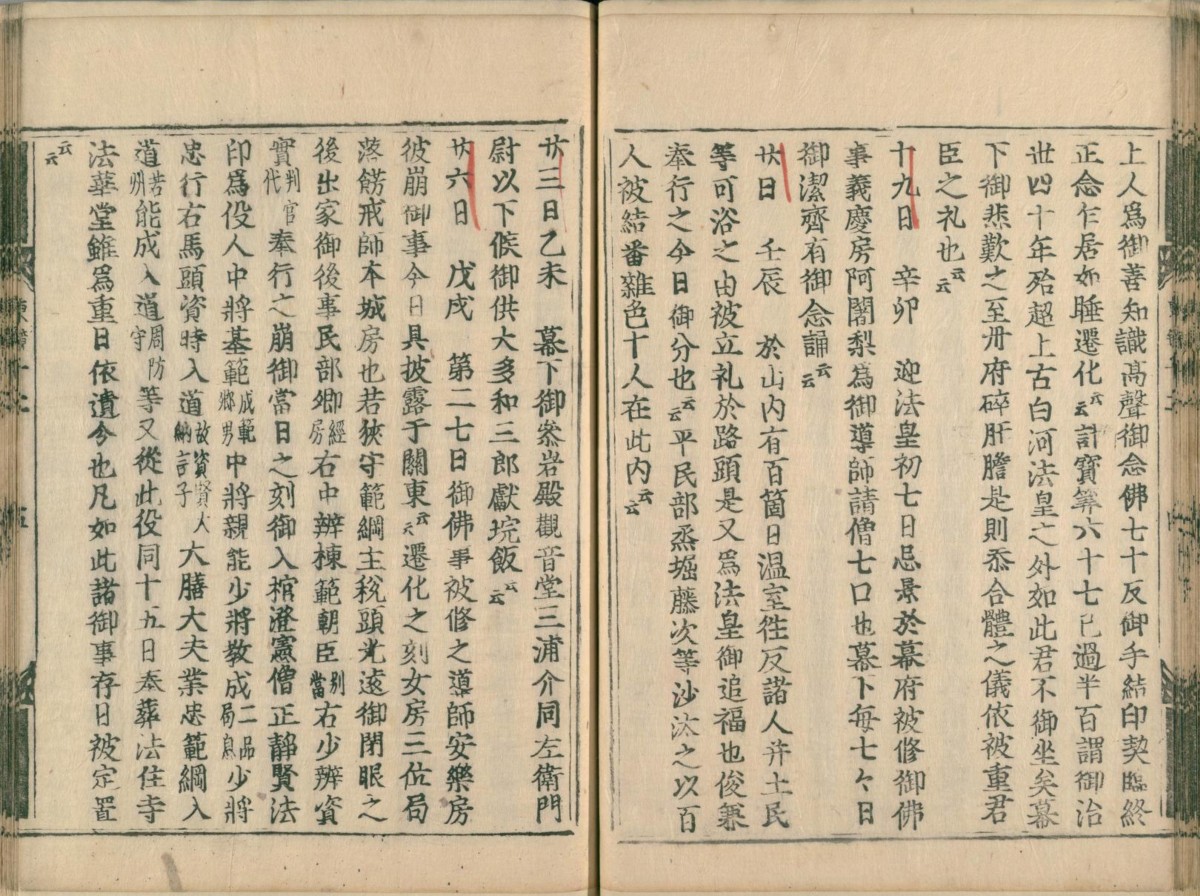 上人爲御善知識高聲御念佛七十反御手結印契臨終
正念乍居如睡遷化云云計寳筭六十七已過半百謂御治
世四十年殆超上古白河法皇之外如此君不御坐矣幕
下御悲歎之至丹府碎肝膽是則忝合體之儀依被重君
臣之礼也云云
十九日　辛卯　迎法皇初七日忌景於幕府被修御佛
事義慶房阿闍梨爲御導師請僧七口也幕下每七々日
御潔齊有御念誦云云
廿日　壬辰　於山内有百箇日温室徃反諸人并土民
等可浴之由被立礼於路頭是又爲法皇御追福也俊兼
奉行之今日御分也云云平民部烝堀藤次等沙汰之以百
人被結番雜色十人在此内云云
廿三日乙未　幕下御叅岩殿觀音堂三浦介同左衛門
尉以下候御供大多和三郎獻埦飯云云
廿六日　戊戌　第二七日御佛事被修之導師安樂房
彼崩御事今日具披露于關東云云遷化之刻女房三位局
落餝戒師本城房也若狹守範綱主税頭光遠御閉眼之
後出家御後事民部卿經房右中辨棟範朝臣别當右少辨資
實判官代奉行之崩御當日之刻御入棺澄憲僧正靜賢法
印爲役人中將基範成範卿男中將親能少將教成二品局息少將
忠行右馬頭資時入道故資賢大納言子大膳大夫業忠範綱入
道若州能成入道周防守等又從此役同十五日奉葬法住寺
法華堂雖爲重日依遺令也凡如此諸御事存日被定置
云云